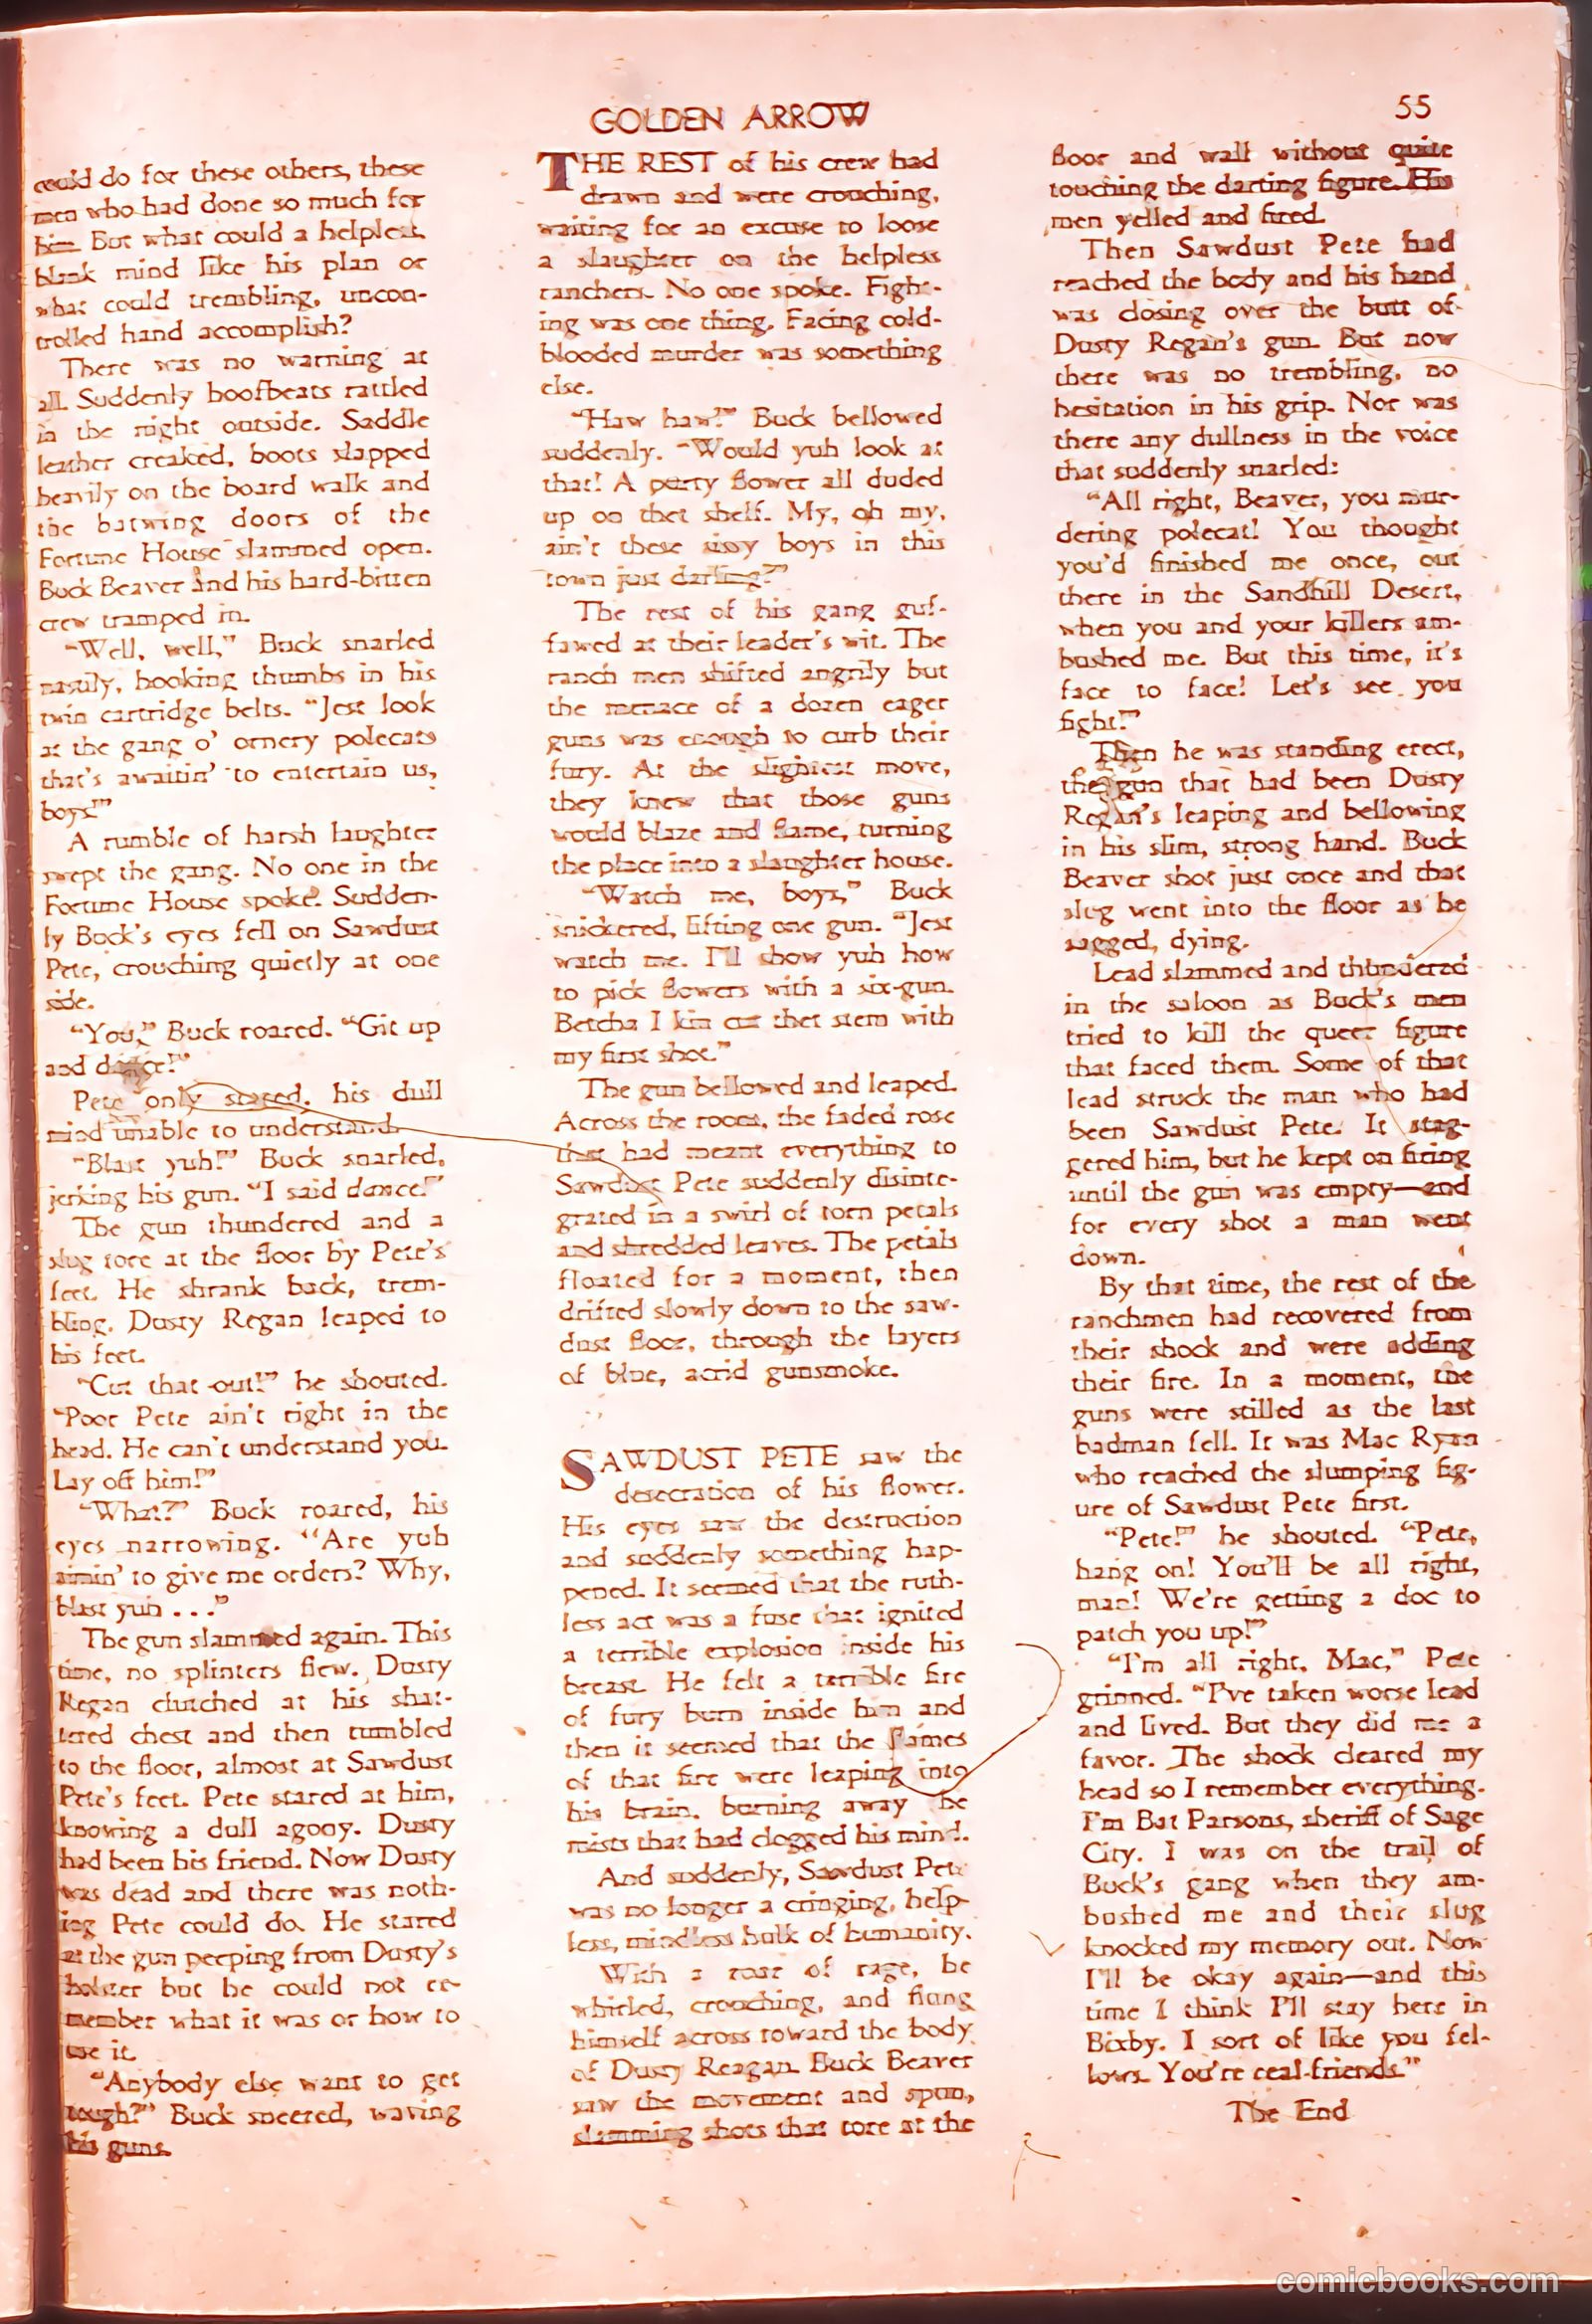 GOLDEN ARROW
55
could do for these others, these
men who had done so much for
him. But what could a helpless
blank mind like his plan or
what could trembling, uncon-
trolled hand accomplish?
There was no warning at
all. Suddenly hoofbeats rattled
in the night outside. Saddle
leather creaked, boots slapped
heavily on the board walk and
the batwing doors of the
Fortune House slammed open.
Buck Beaver and his hard-bitten
crew tramped in.
"Well, well," Buck snarled
nastily, hooking thumbs in his
twin cartridge belts. "Jest look
at the gang o' ornery polecats
that's awaitin' to entertain us,
boys!"
A rumble of harsh laughter
swept the gang. No one in the
Fortune House spoke. Sudden-
ly Buck's eyes fell on Sawdust
Pete, crouching quietly at one
side.
"You," Buck roared. "Git up
and dance!"
Pete only stared, his dull
mind unable to understand.
"Blast yuh!" Buck snarled,
jerking his gun. "I said dance!"
The gun thundered and a
slug tore at the floor by Pete's
feet. He shrank back, trem-
bling. Dusty Regan leaped to
his feet.
"Cut that out!" he shouted.
"Poor Pete ain't right in the
head. He can't understand you.
Lay off him!"
"What?" Buck roared, his
eyes narrowing. "Are yuh
aimin' to give me orders? Why,
blast yuh . . ."
The gun slammed again. This
time, no splinters flew. Dusty
Regan clutched at his shat-
tered chest and then tumbled
to the floor, almost at Sawdust
Pete's feet. Pete stared at him,
knowing a dull agony. Dusty
had been his friend. Now Dusty
was dead and there was noth-
ing Pete could do. He stared
at the gun peeping from Dusty's
holster but he could not re-
member what it was or how to
use it.
"Anybody else want to get
tough?" Buck sneered, waving
his guns.
THE REST of his crew had
drawn and were crouching,
waiting for an excuse to loose
a slaughter on the helpless
ranchers. No one spoke. Fight-
ing was one thing. Facing cold-
blooded murder was something
else.
"Haw haw!" Buck bellowed
suddenly. "Would yuh look at
that! A purty flower all duded
up on thet shelf. My, oh my,
ain't these sissy boys in this
town just darling?"
The rest of his gang guf-
fawed at their leader's wit. The
ranch men shifted angrily but
the menace of a dozen eager
guns was enough to curb their
fury. At the slightest move,
they knew that those guns
would blaze and flame, turning
the place into a slaughter house.
"Watch me, boys," Buck
snickered, lifting one gun. "Jest
watch me. I'll show yuh how
to pick flowers with a six-gun.
Betcha I kin cut thet stem with
my first shot."
The gun bellowed and leaped.
Across the room, the faded rose
that had meant everything to
Sawdust Pete suddenly disinte-
grated in a swirl of torn petals
and shredded leaves. The petals
floated for a moment, then
drifted slowly down to the saw-
dust floor, through the layers
of blue, acrid gunsmoke.
SAWDUST PETE saw the
desecration of his flower.
His eyes saw the destruction
and suddenly something hap-
pened. It seemed that the ruth-
less act was a fuse that ignited
a terrible explosion inside his
breast. He felt a terrible fire
of fury burn inside him and
then it seemed that the flames
of that fire were leaping into
his brain, burning away the
mists that had clogged his mind.
And suddenly, Sawdust Pete
was no longer a cringing, help-
less, mindless hulk of humanity.
With a roar of rage, he
whirled, crouching, and flung
himself across toward the body
of Dusty Reagan. Buck Beaver
saw the movement and spun,
slamming shots that tore at the
floor and wall without quite
touching the darting figure. His
men yelled and fired.
Then Sawdust Pete had
reached the body and his hand
was closing over the butt of
Dusty Regan's gun. But now
there was no trembling, no
hesitation in his grip. Nor was
there any dullness in the voice
that suddenly snarled:
"All right, Beaver, you mur-
dering polecat! You thought
you'd finished me once, out
there in the Sandhill Desert,
when you and your killers am-
bushed me. But this time, it's
face to face! Let's see you
fight!"
Then he was standing erect,
the gun that had been Dusty
Regan's leaping and bellowing
in his slim, strong hand. Buck
Beaver shot just once and that
slug went into the floor as he
sagged, dying.
Lead slammed and thundered
in the saloon as Buck's men
tried to kill the queer figure
that faced them. Some of that
lead struck the man who had
been Sawdust Pete. It stag-
gered him, but he kept on firing
until the gun was empty—and
for every shot a man went
down.
By that time, the rest of the
ranchmen had recovered from
their shock and were adding
their fire. In a moment, the
guns were stilled as the last
badman fell. It was Mac Ryan
who reached the slumping fig-
ure of Sawdust Pete first.
"Pete!" he shouted. "Pete,
hang on! You'll be all right,
man! We're getting a doc to
patch you up!"
"I'm all right, Mac," Pete
grinned. "I've taken worse lead
and lived. But they did me a
favor. The shock cleared my
head so I remember everything.
I'm Bat Parsons, sheriff of Sage
City. I was on the trail of
Buck's gang when they am-
bushed me and their slug
knocked my memory out. Now
I'll be okay again—and this
time I think I'll stay here in
Bixby. I sort of like you fel-
lows. You're real friends."
The End
comicbooks.com